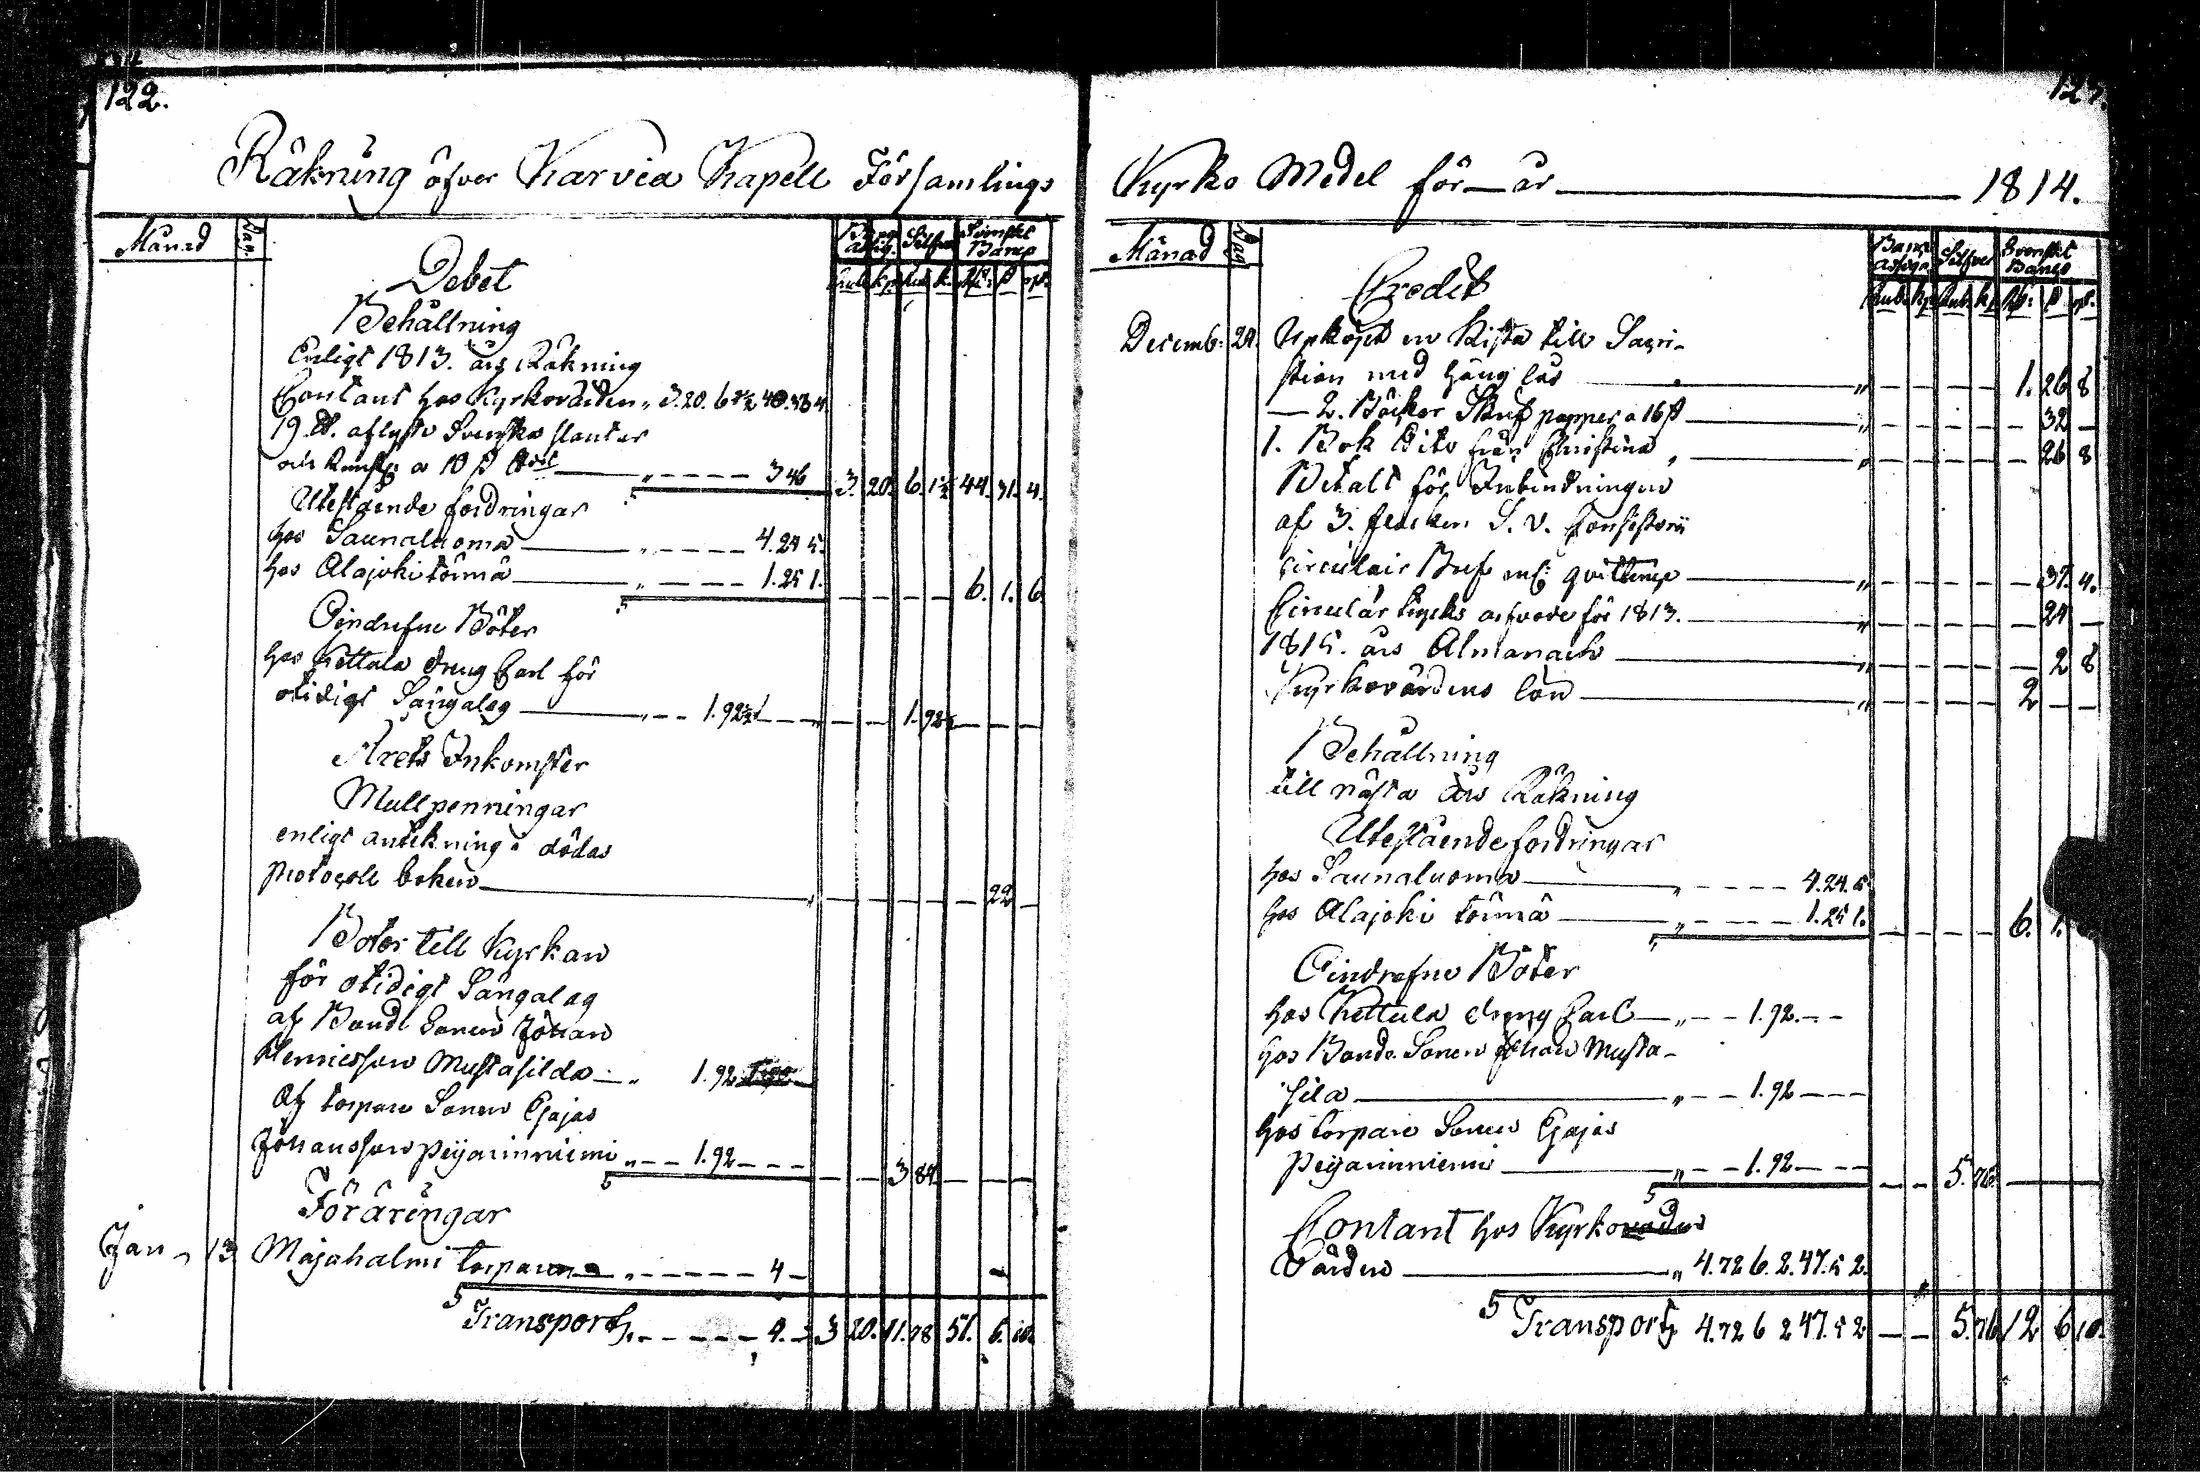 122.
Räkning öfver Karvia Kapell Församlings
Månad Dag.
Debet
Behållning
Enligt 1813. års Räkning
Contant hos Kyrkovärden
19 aflyste Svenska slantar
3 46 3. 20. 6. 1½ 44. 31. 4.
Utestående fordringar
hos Saunaluoma 4.24 5.
hos Alajoki törmä 1.25 1. 6. 1. 6
Oindrefne Böter
hos Kettula dräng Carl för
otidigt Sängalag 1.92½ 1.92½
Årets Inkomster
Mullpenningar
enligt antekning i dödas
Protocoll boken 22
Böter till Kyrkan
för otidigt Sängalag
af Bonde Sonen Johan
Henricsson Mustasilda 1.92
Af torpare Sonen Esajas
Johansson Peijarinniemi 1.92 3 84
Föräringar
Jan 13 Majahalmi torpare 4
Transport 4. 3 20. 11.78 51. 6. 10.
Kyrko Medel för år 1814.
Månad Dag
Credit
Rub. k. Rub. k.
Decemb: 24. Upköpt en Kista till Sacri-
stian med häng lås 1. 26 8
2. Böcker Skrif papper a 16 ß 32
1. Bok Dito från Christina 26 8
Betalt för Inbindningen
af 3. stycken S. V. Consistorii
circulair Bref enl: qvittence 37. 4.
Circulär trycks arfvode för 1813. 24
1815. års Almanach 2 8
Kyrkovärdens lön 2
Behållning
till nästa års Räkning
Utestående fordringar
hos Saunaluoma 4.24. 5
hos Alajoki törmä 1.25 1. 6. 1.
Oindrefne Böter
hos Kettula dräng Carl 1.92
hos Bonde Sonen Johan Musta-
sila 1.92
hos torpare Sonen Esajas
Peijarinniemi 1.92 5. 76.
Contant hos Kyrko
Värden 4.72 6. 2. 47. 5 2.
Transport 4.72 6 2 47. 5 2 5.76 12 6 10.